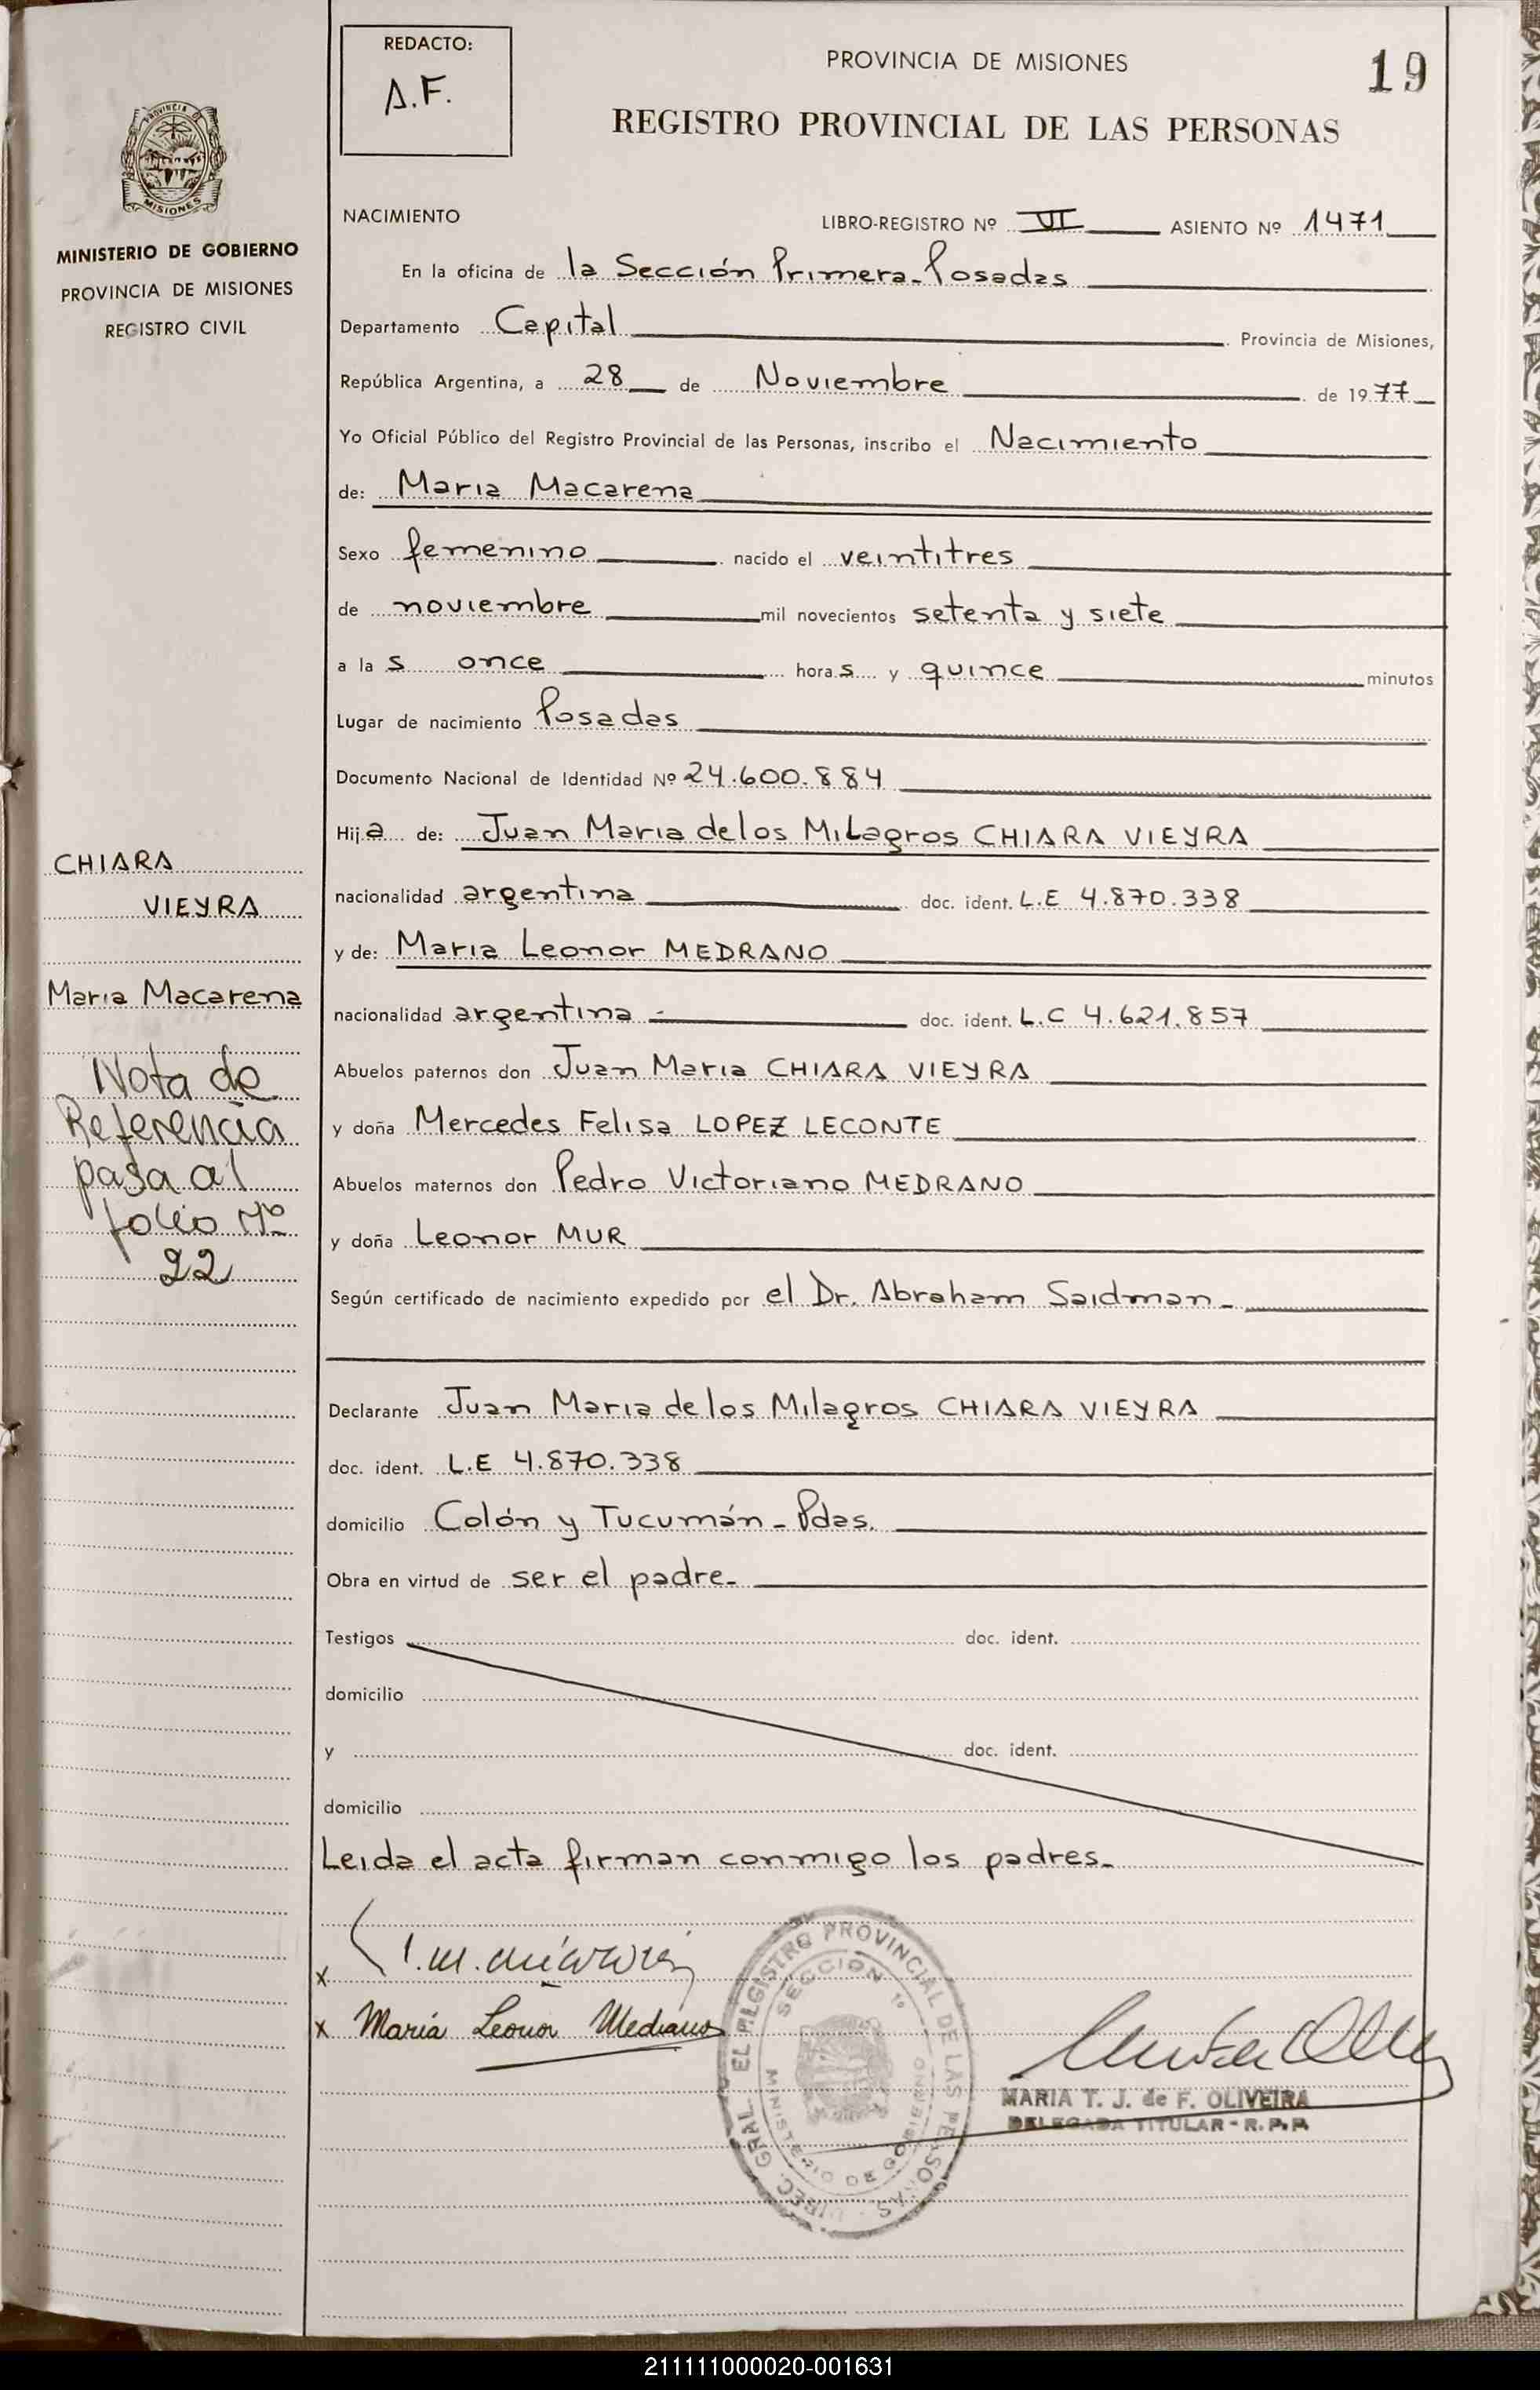 REDACTO:
A.F.
PROVINCIA DE MISIONES
19
REGISTRO PROVINCIAL DE LAS PERSONAS
PROVINCIA DE
MISIONES
MINISTERIO DE GOBIERNO
PROVINCIA DE MISIONES
REGISTRO CIVIL
NACIMIENTO LIBRO-REGISTRO Nº VI ASIENTO Nº 1471
En la oficina de la Sección Primera-Posadas
Departamento Capital Provincia de Misiones,
República Argentina, a 28 de Noviembre de 1977
Yo Oficial Público del Registro Provincial de las Personas, inscribo el Nacimiento
de: Maria Macarena
Sexo femenino nacido el veintitres
de noviembre mil novecientos setenta y siete
a la s once hora s y quince minutos
Lugar de nacimiento Posadas
Documento Nacional de Identidad Nº 24.600.884
Hij a de: Juan Maria de los Milagros CHIARA VIEYRA
nacionalidad argentina doc. ident. L.E 4.870.338
y de: Maria Leonor MEDRANO
nacionalidad argentina - doc. ident. L.C 4.621.857
Abuelos paternos don Juan Maria CHIARA VIEYRA
y doña Mercedes Felisa LOPEZ LECONTE
Abuelos maternos don Pedro Victoriano MEDRANO
y doña Leonor MUR
Según certificado de nacimiento expedido por el Dr. Abraham Saidman-
Declarante Juan Maria de los Milagros CHIARA VIEYRA
doc. ident. L.E 4.870.338
domicilio Colón y Tucumán - Pdas.
Obra en virtud de ser el padre-
Testigos doc. ident.
domicilio
y doc. ident.
domicilio
Leida el acta firman conmigo los padres-
CHIARA
VIEYRA
Maria Macarena
Nota de
Referencia
pasa al
folio Nº
22
x
x María Leonor Medrano
DIREC. GRAL. EL REGISTRO PROVINCIAL DE LAS PERSONAS
SECCION 1º
MINISTERIO DE GOBIERNO
MARIA T. J. de F. OLIVEIRA
DELEGADA TITULAR - R. P. P.
211111000020-001631